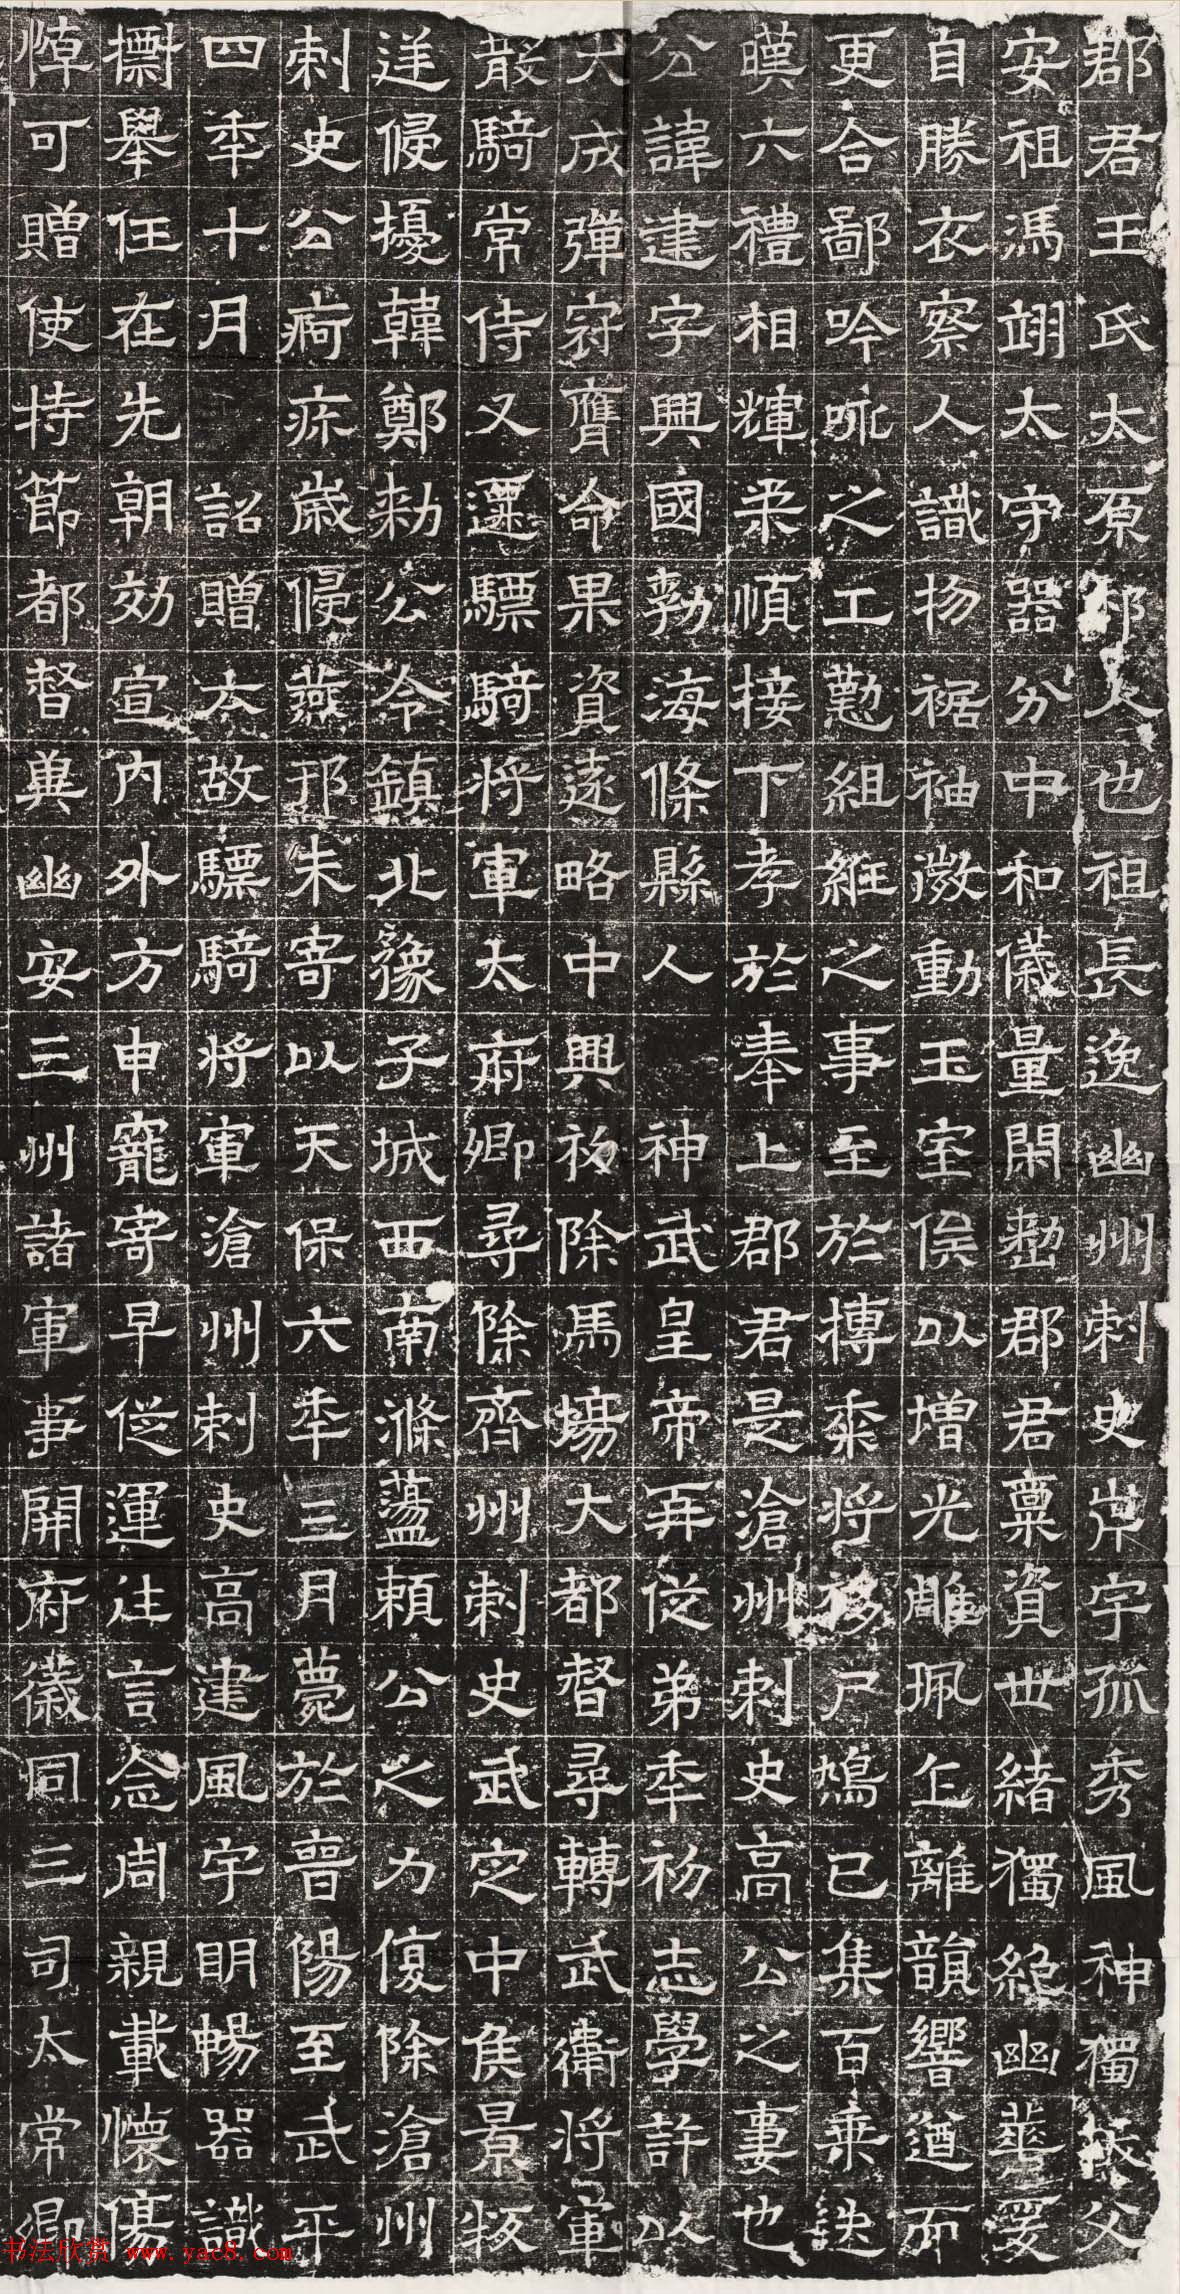 郡君王氏太原祁人也祖長逸幽州刺史岸宇孤秀風神獨拔父
安祖馮翊太守器分中和儀量閑懿郡君稟資世緒獨絶幽華爰
自勝衣察人識物裾袖澂動玉室俟以增光雕珮乍離韻響遒而
更合鄙吟咏之工懃組絍之事至於摶黍將移尸鳩已集百乗迭
暎六禮相輝柔順接下孝於奉上郡君是滄州刺史高公之妻也
公諱建字興國勃海條縣人神武皇帝再従弟年初志學許以
大成彈冠膺命果資遠略中興初除馬塲大都督尋轉武衛將軍
散騎常侍又遷驃騎將軍太府卿尋除齊州刺史武定中侯景叛
迸侵擾韓鄭勅公令鎮北豫子城西南滌蕩頼公之力復除滄州
刺史公痾疢歲侵燕邦未寄以天保六年三月薨於晉陽至武平
四年十月詔贈大故驃騎將軍滄州刺史高建風宇明暢器識
擲舉任在先朝効宣内外方申寵寄早従運往言念周親載懷傷
悼可贈使持節都督輿幽安三州諸軍事開府儀同三司太常卿
书法欣赏 www.yac8.com